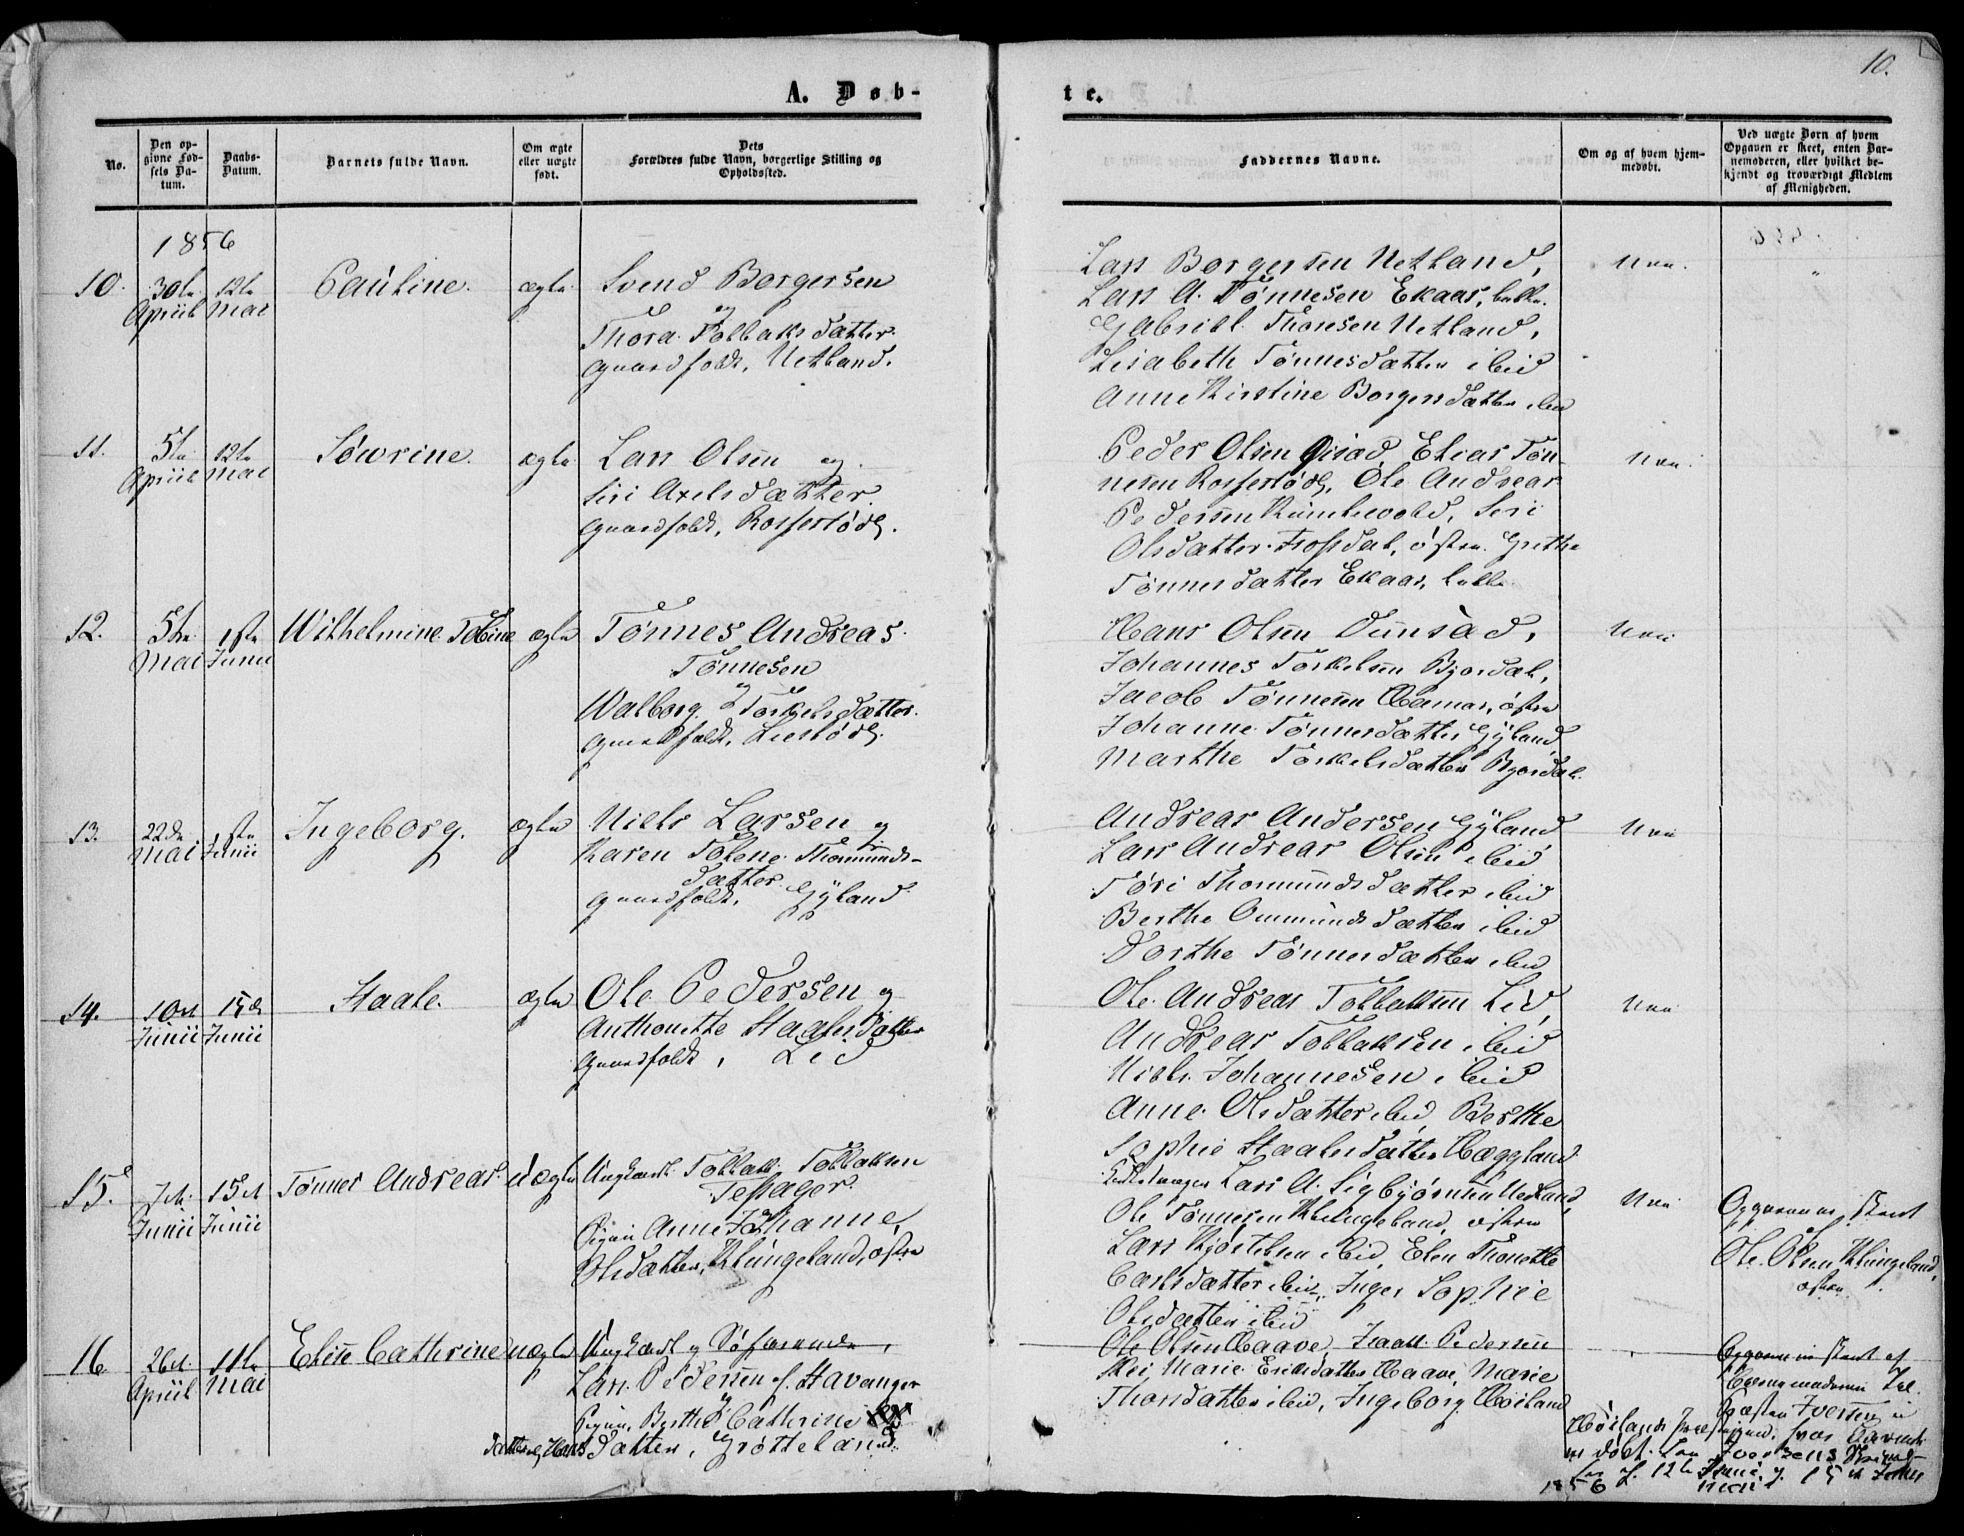 10.
A. Døb-
te.
No.
Den op-
givne Fød-
sels Da-
tum.
Daabs-
Datum.
Barnets fulde Navn.
Om ægte
eller uægte
født.
Dets
Forældres fulde Navn, borgerlige Stilling og
Opholdssted.
Faddernes Navne.
Om og af hvem hjem-
medøbt.
Ved uægte Børn af hvem
Opgaven er skeet, enten Bar-
nemoderen, eller hvilket be-
kjendt og troværdigt Medlem
af Menigheden.
1856
10.
30te
April
12te
Mai
Pauline.
ægte
Svend Borgersen
og
Thora Tollaksdatter
Gaardfolk, Netland.
Lars Borgersen Netland,
Lars A. Tønnesen Ekaas,
Gabriel Thorsen Netland,
Lisabeth Tønnesdatter ibid
Anne Kirstine Borgersdatter ibid
Nei.
11.
5te
April
12te
Mai
Søvrine.
ægte
Lars Olsen og
Siri Axelsdatter
Gaardfolk, Rossesløds.
Peder Olsen Qisad, Elias Tøn-
nesen Rossesløds, Ole Andreas
Pedersen, Siri
Olsdatter, østre. Grethe
Tønnesdatter Ekaas,
Nei.
12.
5te
Mai
1ste
Junii
Wilhelmine Tobine
ægte
Tønnes Andreas
Tønnesen
og
Walborg Torkelsdatter
Gaardfolk,
Hans Olsen
Johannes Torkelsen Bjordal,
Jacob Tønnesen Hamar, østre
Johanne Tønnesdatter Gyland,
Marthe Torkelsdatter Bjordal.
Nei
13.
22de
Mai
1ste
Junii
Ingeborg.
ægte
Niels Larsen og
Karen Tolene Thormunds-
datter
Gaardfolk, Gyland
Andreas Andersen Gyland
Lars Andreas Olsen ibid
Tøri Thormundsdatter ibid
Berthe Ommundsdatter ibid
Dorthe Tønnesdatter ibid
Nei
14.
10de
Junii
15de
Junii
Staale.
ægte
Ole Pedersen og
Anthonette Staalesdatter
Gaardfolk, Lid
Ole Andreas Tollaksen Lid,
Andreas Tollaksen ibid
Niels Johannesen ibid
Anne Olsdatter ibid, Berthe
Sophie Staalesdatter Hæggland
Nei
15.
7de
Junii
15de
Junii
Tønnes Andreas.
uægte
Ungkarl Tollak Tollaksen
Tessager
og
Pigen Anne Johanne
Olsdatter, Klungeland, østre
Lars A. Sigbjørnsen Netland,
Ole Tønnesen Klungeland, østre
Lars Kjostelsen ibid, Elen Thonette
Carlsdatter ibid, Inger Sophie
Olsdatter ibid
Nei
Opgaven er skeet
af
Ole Olsen Klungeland,
østre.
16
26de
April
11te
Mai
Elise Cathrine
uægte
Ungkarl og Søfarende,
Lars Pedersen af Stavanger
og
Pigen Berthe Cathrine
datter, Grøtteland
Ole Olsen Haave, Isaak Pedersen
Marie Eriksdatter Haave, Marie
Thorsdatter ibid, Ingeborg Høiland
Opgaven er skeet af
Barnemoderen
Præsten Iversen i
Høilands Præstegjeld, hvor Barnet
er døbt.
1856